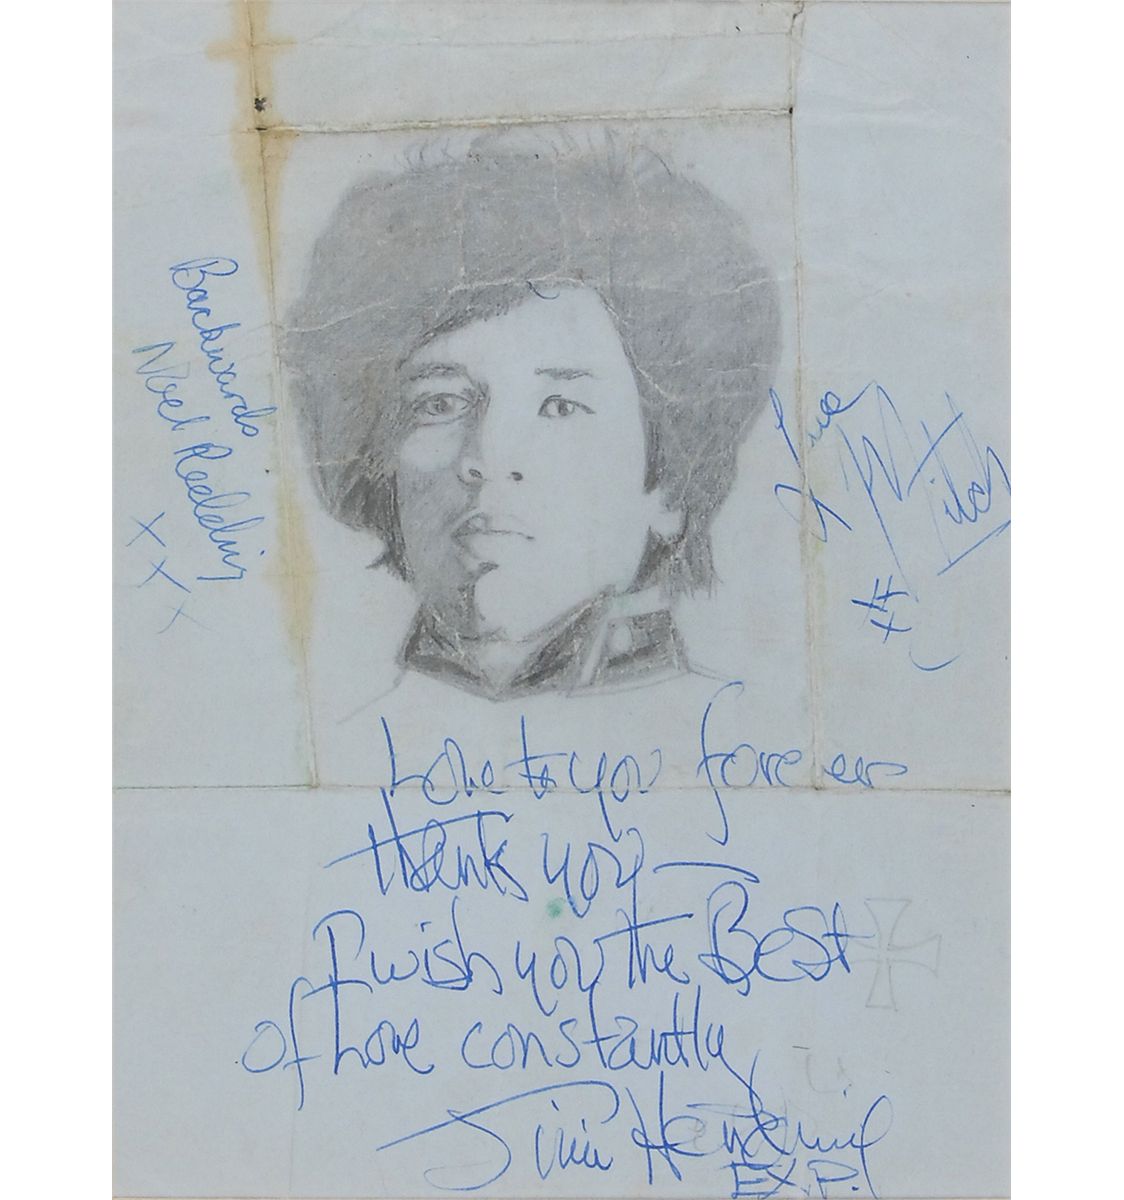 Backwards
Noel Redding
X X X
Love
Mitch
XX
Love to you forever
thanks you —
I wish you the Best
of Love constantly
Jimi Hendrix
EXP.